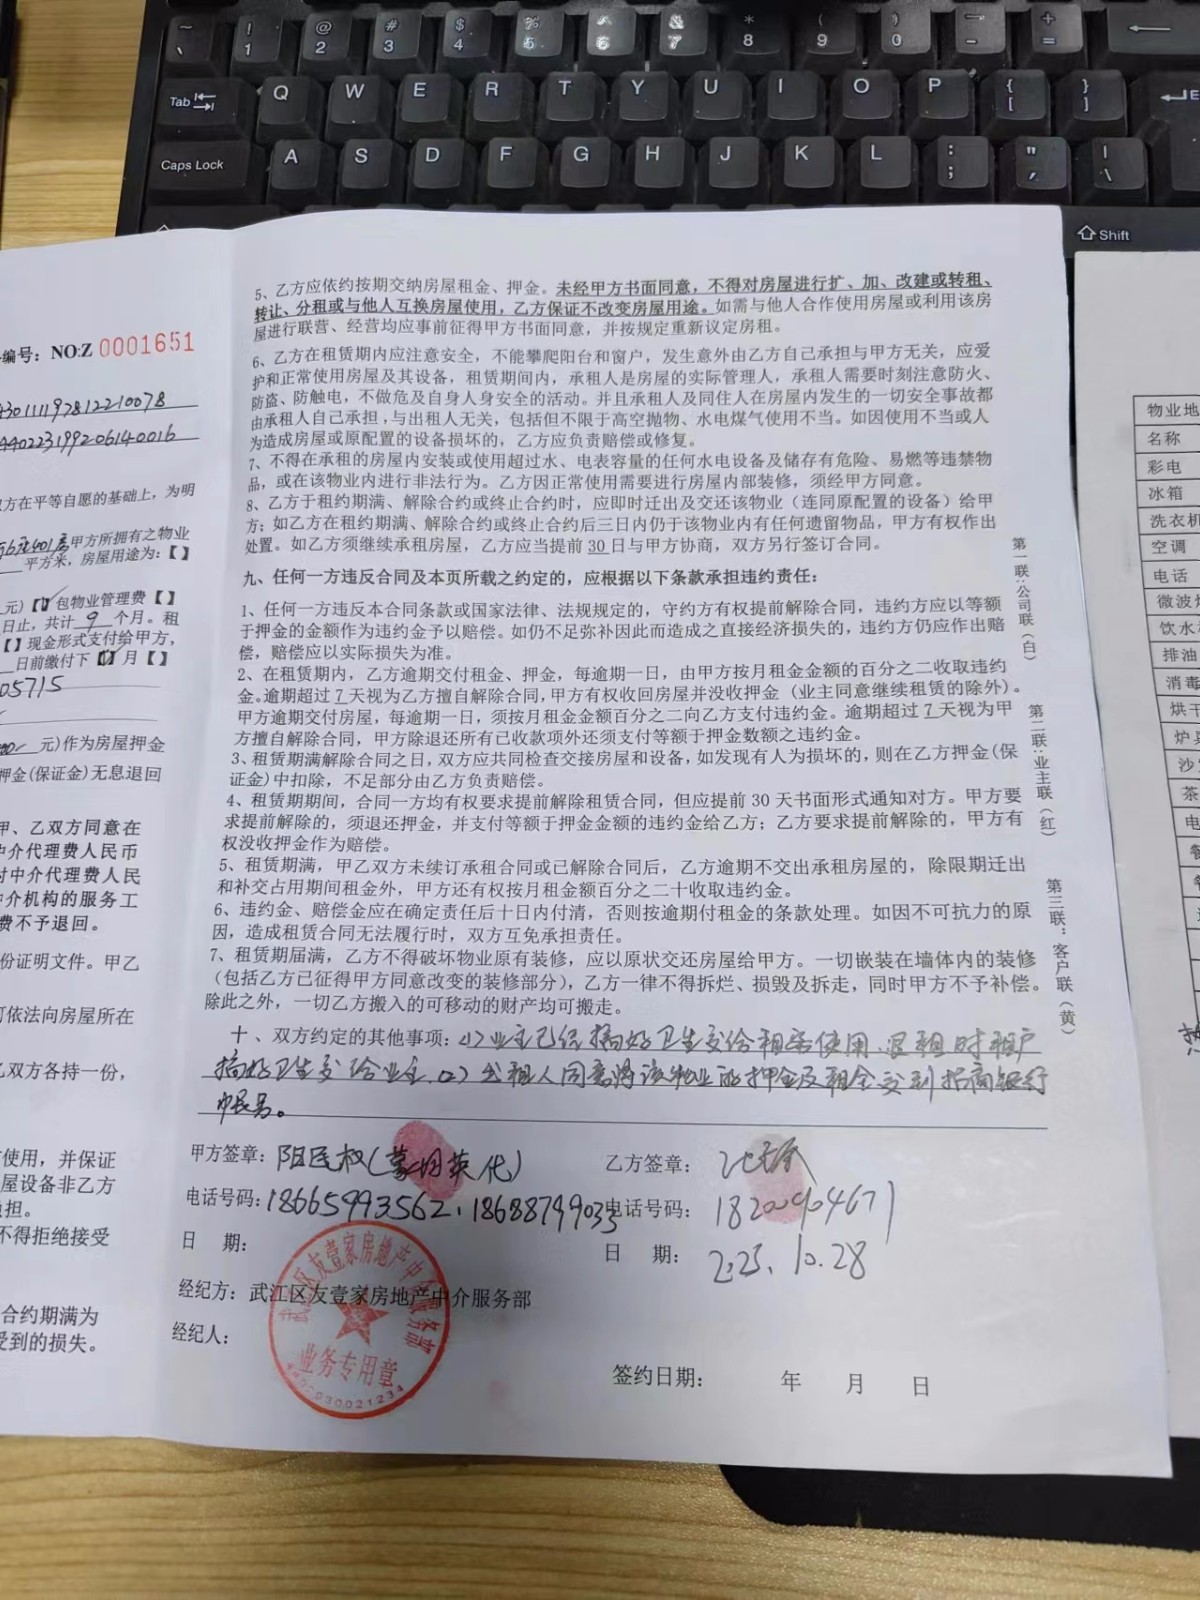 ~ ! @ # $ % ^ & * ( ) — +
、 1 2 3 4 5 6 7 8 9 0 - =
Tab Q W E R T Y U I O P { [ } ]
Caps Lock A S D F G H J K L : ; " ' | \
Shift
编号：NO:Z 0001651
430111197812210078
440223199206140016
方在平等自愿的基础上，为明
甲方所拥有之物业
平方米，房屋用途为：【 】
元）【√】包物业管理费【 】
日止，共计 9 个月。租
【 】现金形式支付给甲方，
日前缴付下【√】月【 】
05715
元)作为房屋押金
押金(保证金)无息退回
甲、乙双方同意在
中介代理费人民币
付中介代理费人民
中介机构的服务工
费不予退回。
份证明文件。甲乙
可依法向房屋所在
乙双方各持一份，
使用，并保证
屋设备非乙方
担。
不得拒绝接受
合约期满为
受到的损失。
5、乙方应依约按期交纳房屋租金、押金。未经甲方书面同意，不得对房屋进行扩、加、改建或转租、
转让、分租或与他人互换房屋使用，乙方保证不改变房屋用途。如需与他人合作使用房屋或利用该房
屋进行联营、经营均应事前征得甲方书面同意，并按规定重新议定房租。
6、乙方在租赁期内应注意安全，不能攀爬阳台和窗户，发生意外由乙方自己承担与甲方无关，应爱
护和正常使用房屋及其设备，租赁期间内，承租人是房屋的实际管理人，承租人需要时刻注意防火、
防盗、防触电，不做危及自身人身安全的活动。并且承租人及同住人在房屋内发生的一切安全事故都
由承租人自己承担，与出租人无关，包括但不限于高空抛物、水电煤气使用不当。如因使用不当或人
为造成房屋或原配置的设备损坏的，乙方应负责赔偿或修复。
7、不得在承租的房屋内安装或使用超过水、电表容量的任何水电设备及储存有危险、易燃等违禁物
品，或在该物业内进行非法行为。乙方因正常使用需要进行房屋内部装修，须经甲方同意。
8、乙方于租约期满、解除合约或终止合约时，应即时迁出及交还该物业（连同原配置的设备）给甲
方；如乙方在租约期满、解除合约或终止合约后三日内仍于该物业内有任何遗留物品，甲方有权作出
处置。如乙方须继续承租房屋，乙方应当提前 30 日与甲方协商，双方另行签订合同。
九、任何一方违反合同及本页所载之约定的，应根据以下条款承担违约责任：
1、任何一方违反本合同条款或国家法律、法规规定的，守约方有权提前解除合同，违约方应以等额
于押金的金额作为违约金予以赔偿。如仍不足弥补因此而造成之直接经济损失的，违约方仍应作出赔
偿，赔偿应以实际损失为准。
2、在租赁期内，乙方逾期交付租金、押金，每逾期一日，由甲方按月租金金额的百分之二收取违约
金。逾期超过 7 天视为乙方擅自解除合同，甲方有权收回房屋并没收押金（业主同意继续租赁的除外）。
甲方逾期交付房屋，每逾期一日，须按月租金金额百分之二向乙方支付违约金。逾期超过 7 天视为甲
方擅自解除合同，甲方除退还所有已收款项外还须支付等额于押金数额之违约金。
3、租赁期满解除合同之日，双方应共同检查交接房屋和设备，如发现有人为损坏的，则在乙方押金(保
证金)中扣除，不足部分由乙方负责赔偿。
4、租赁期期间，合同一方均有权要求提前解除租赁合同，但应提前 30 天书面形式通知对方。甲方要
求提前解除的，须退还押金，并支付等额于押金金额的违约金给乙方；乙方要求提前解除的，甲方有
权没收押金作为赔偿。
5、租赁期满，甲乙双方未续订承租合同或已解除合同后，乙方逾期不交出承租房屋的，除限期迁出
和补交占用期间租金外，甲方还有权按月租金额百分之二十收取违约金。
6、违约金、赔偿金应在确定责任后十日内付清，否则按逾期付租金的条款处理。如因不可抗力的原
因，造成租赁合同无法履行时，双方互免承担责任。
7、租赁期届满，乙方不得破坏物业原有装修，应以原状交还房屋给甲方。一切嵌装在墙体内的装修
（包括乙方已征得甲方同意改变的装修部分），乙方一律不得拆烂、损毁及拆走，同时甲方不予补偿。
除此之外，一切乙方搬入的可移动的财产均可搬走。
十、双方约定的其他事项：(1)业主已经搞好卫生交给租客使用，退租时租户
搞好卫生交给业主。(2)出租人同意将该物业的押金及租金交到招商银行
帐号。
甲方签章：阳民权（蒙如英代）
乙方签章：
电话号码：18665993562，18688799033
电话号码：18200904671
日 期：
日 期：2025.10.28
经纪方：武江区友壹家房地产中介服务部
经纪人：
签约日期： 年 月 日
武江区友壹家房地产中介服务部
业务专用章
第一联：公司联（白）
第二联：业主联（红）
第三联：客户联（黄）
物业地
名称
彩电
冰箱
洗衣机
空调
电话
微波炉
饮水
排油
消毒
烘干
炉具
沙
茶
电